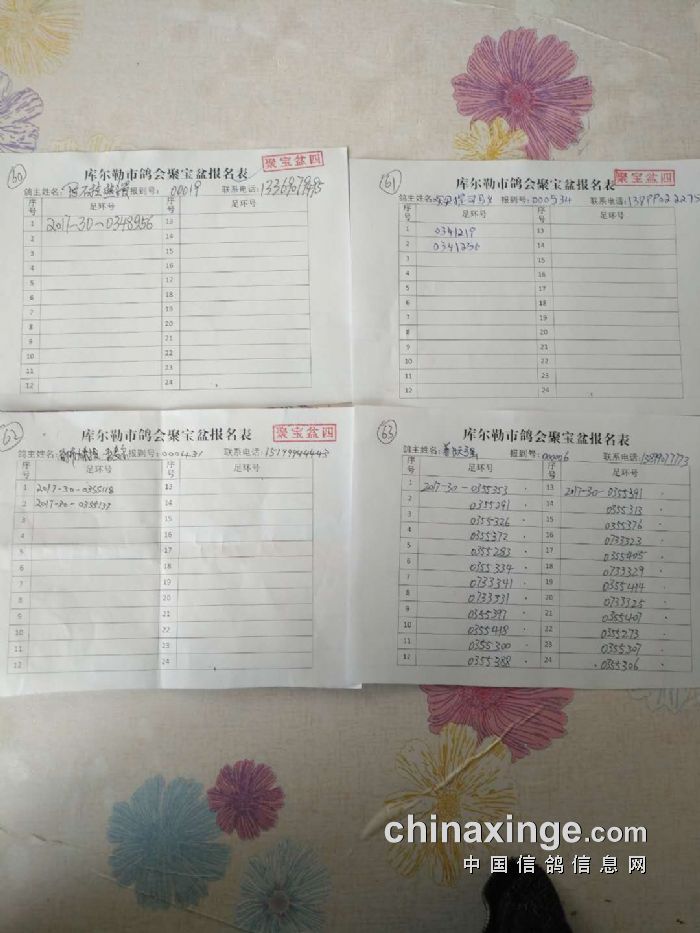 60
聚宝盆四
库尔勒市鸽会聚宝盆报名表
鸽主姓名: 报到号: 00019 联系电话:
序号 足环号 序号 足环号
1 2017-30-0348956 13
2 14
3 15
4 16
5 17
6 18
7 19
8 20
9 21
10 22
11 23
12 24
61
聚宝盆四
库尔勒市鸽会聚宝盆报名表
鸽主姓名: 报到号: 000534 联系电话:
序号 足环号 序号 足环号
1 0341219 13
2 14
3 15
4 16
5 17
6 18
7 19
8 20
9 21
10 22
11 23
12 24
62
聚宝盆四
库尔勒市鸽会聚宝盆报名表
鸽主姓名: 报到号: 联系电话:
序号 足环号 序号 足环号
1 2017-30-0355118 13
2 14
3 15
4 16
5 17
6 18
7 19
8 20
9 21
10 22
11 23
12 24
63
库尔勒市鸽会聚宝盆报名表
鸽主姓名: 报到号: 联系电话:
序号 足环号 序号 足环号
1 2017-30-0355353 13 2017-30-0355391
2 0355291 14 0355313
3 0355326 15 0355376
4 0355372 16 0733323
5 0355283 17 0355405
6 0355334 18 0733329
7 0733341 19 0355414
8 0733331 20 0733325
9 0355397 21 0355407
10 0355418 22 0355273
11 0355300 23 0355307
12 0355388 24 0355306
chinaxinge.com
中国信鸽信息网